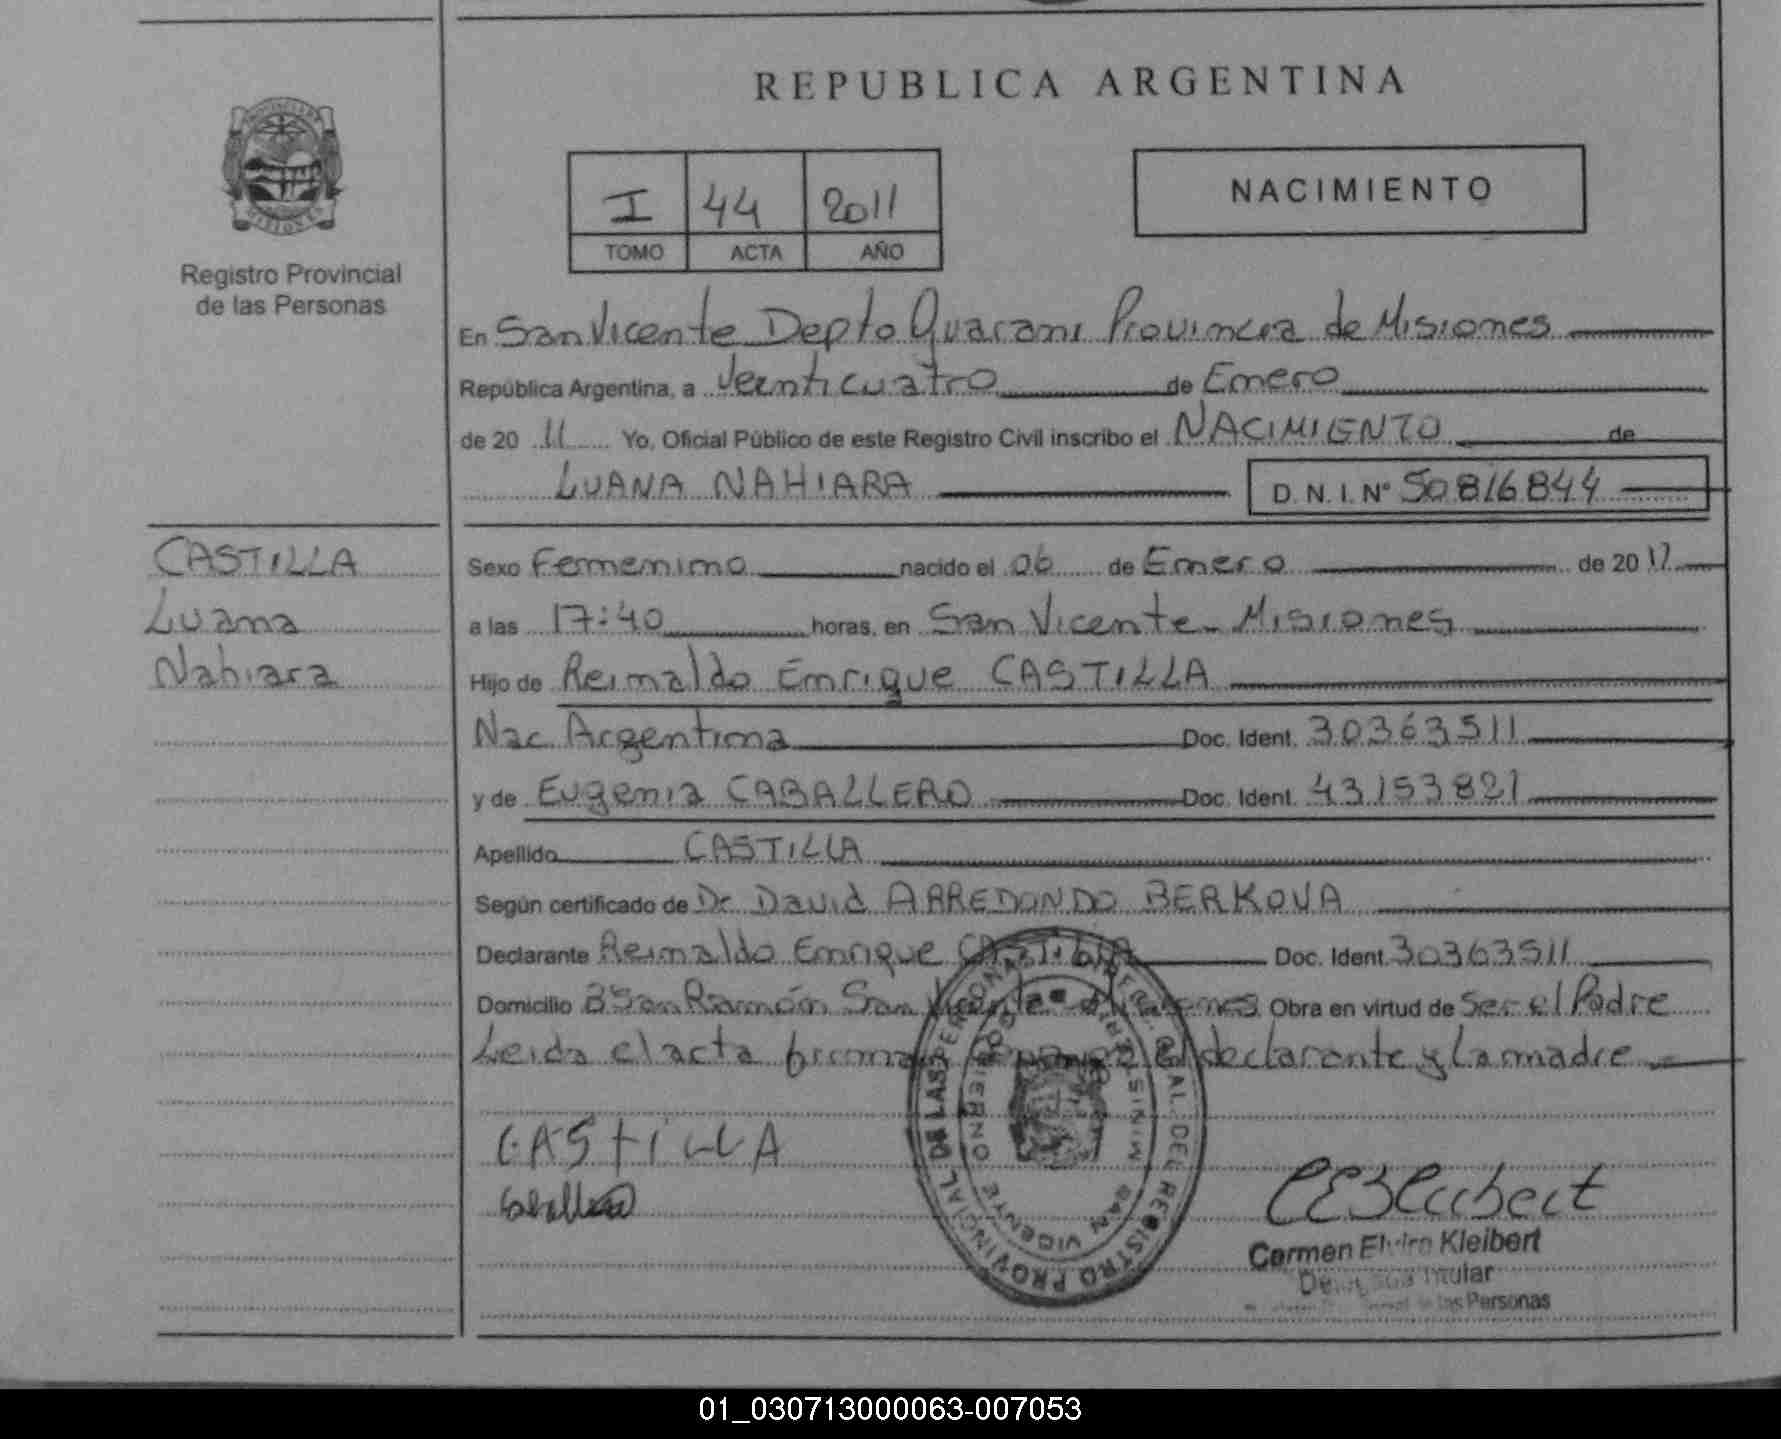 REPUBLICA ARGENTINA
I 44 2011
TOMO ACTA AÑO
NACIMIENTO
Registro Provincial
de las Personas
En San Vicente Depto Guarani Provincia de Misiones
República Argentina, a Veinticuatro de Enero
de 20 11 Yo, Oficial Público de este Registro Civil inscribo el NACIMIENTO de
LUANA NAHIARA D. N. I. N° 50816844
CASTILLA
Luana
Nahiara
Sexo Femenino nacido el 06 de Enero de 20
a las 17:40 horas, en San Vicente - Misiones
Hijo de Reinaldo Enrique CASTILLA
Nac. Argentina Doc. Ident. 30363511
y de Eugenia CABALLERO Doc. Ident. 43153821
Apellido CASTILLA
Según certificado de Dr. David ARREDONDO BERKOVA
Declarante Reinaldo Enrique CASTILLA Doc. Ident. 30363511
Domicilio B° San Ramón San Vicente - Misiones Obra en virtud de Ser el Padre
Leida el acta el declarante y La madre
CASTILLA
Carmen Elvira Kleibert
Titular
de las Personas
REGISTRO PROVINCIAL DE LAS PERSONAS
SAN VICENTE
01_030713000063-007053